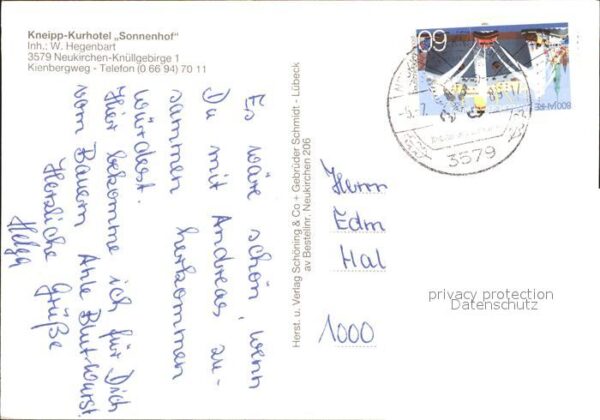 Kneipp-Kurhotel „Sonnenhof"
Inh.: W. Hegenbart
3579 Neukirchen-Knüllgebirge 1
Kienbergweg - Telefon (0 66 94) 70 11
Es wäre schön, wenn
Du mit Andreas zu-
sammen herkommen
würdest.
Hier bekomme ich für Dich
vom Bauern Ahle Blut-Wurst
Herzliche Grüße
Helga
Herst. u. Verlag Schöning & Co + Gebrüder Schmidt - Lübeck
av Bestellnr. Neukirchen 206
60
800 JAHRE
3579
Herrn
Edm
Hal
1000
privacy protection
Datenschutz